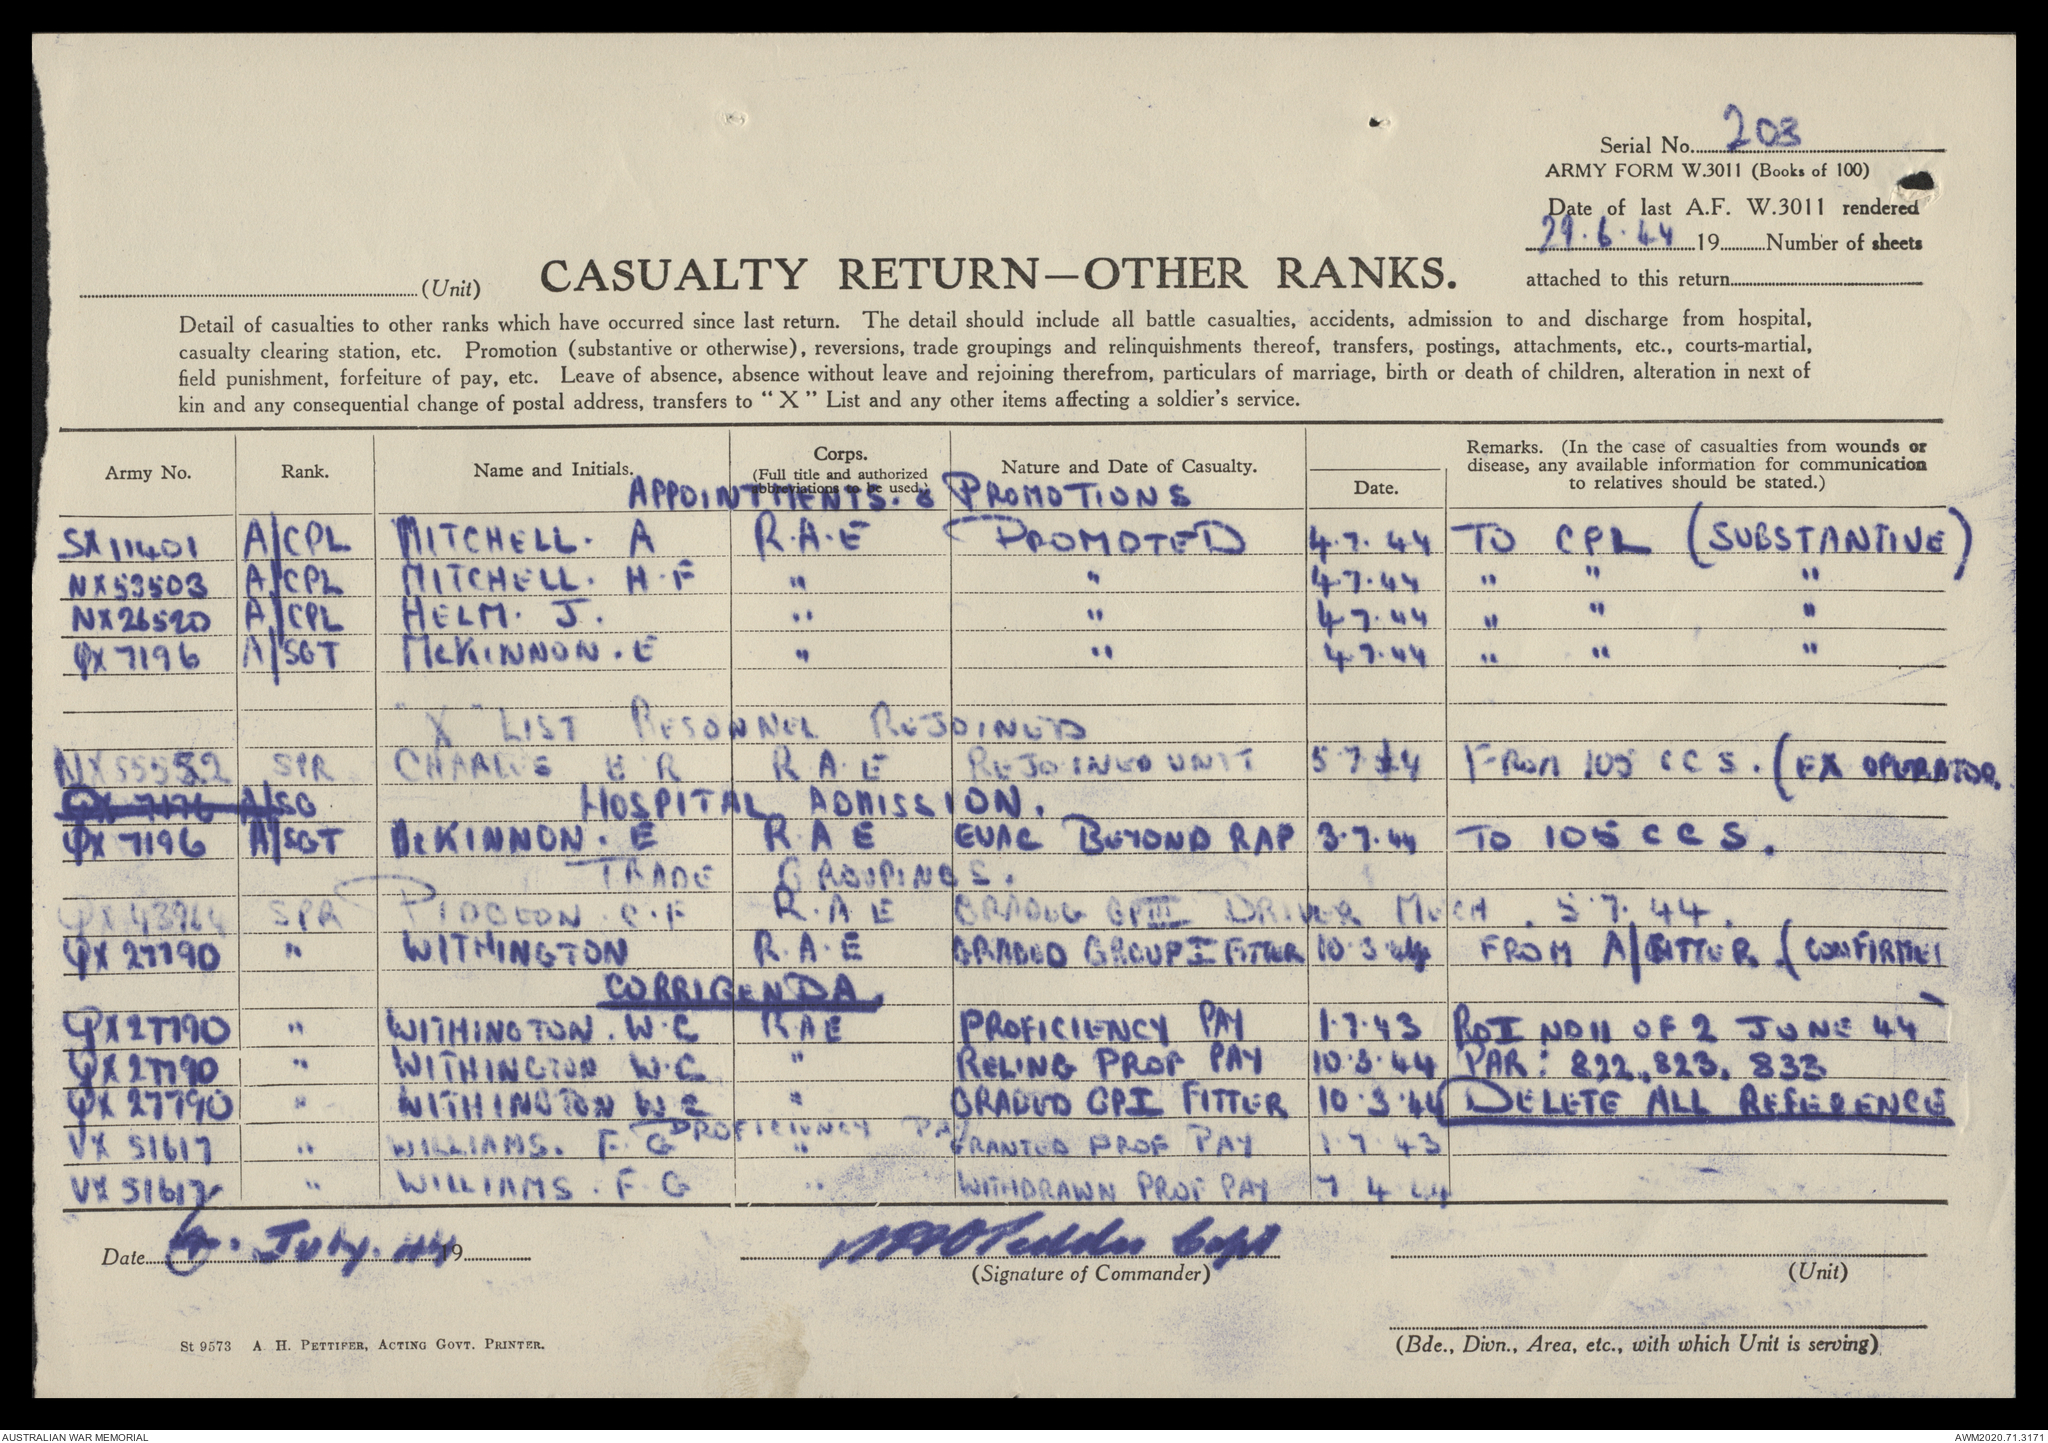 Serial No. 203
ARMY FORM W.3011 (Books of 100)
Date of last A.F. W.3011 rendered
29.6.44 19 Number of sheets
attached to this return
(Unit) CASUALTY RETURN—OTHER RANKS.
Detail of casualties to other ranks which have occurred since last return. The detail should include all battle casualties, accidents, admission to and discharge from hospital,
casualty clearing station, etc. Promotion (substantive or otherwise), reversions, trade groupings and relinquishments thereof, transfers, postings, attachments, etc., courts-martial,
field punishment, forfeiture of pay, etc. Leave of absence, absence without leave and rejoining therefrom, particulars of marriage, birth or death of children, alteration in next of
kin and any consequential change of postal address, transfers to "X" List and any other items affecting a soldier's service.
Army No. Rank. Name and Initials. Corps. (Full title and authorized abbreviations to be used.) Nature and Date of Casualty. Date. Remarks. (In the case of casualties from wounds or disease, any available information for communication to relatives should be stated.)
APPOINTMENTS. & PROMOTIONS
SX11401 A/CPL MITCHELL. A R.A.E PROMOTED 4.7.44 TO CPL (SUBSTANTIVE)
NX53503 A/CPL MITCHELL. H.F " " 4.7.44 " " "
NX26520 A/CPL HELM. J. " " 4.7.44 " " "
QX7196 A/SGT McKINNON. E " " 4.7.44 " " "
"X" LIST PESONNEL REJOINED
NX55552 SPR CHARLES E R R.A.E REJOINED UNIT 5 7 44 FROM 105 CCS. (EX OPERATOR.
QX 7176 A/SG HOSPITAL ADMISSION.
QX 7196 A/SGT McKINNON. E R A E EVAC BEYOND RAP 3.7.44 TO 105 C C S.
TRADE GROUPINGS.
SPR PIDGEON. C.F R.A E GRADED GPIII DRIVER MECH. 5.7.44.
QX 27790 " WITHINGTON R.A.E GRADED GROUP I FITTER 10.3.44 FROM A/FITTER. (CONFIRMED)
CORRIGENDA.
QX27790 " WITHINGTON. W.C R.A E PROFICIENCY PAY 1.7.43 ROI NO 11 OF 2 JUNE 44
QX27790 " WITHINGTON W.C " RELING PROF PAY 10.3.44 PAR: 822, 823, 833
QX 27790 " WITHINGTON W C " GRADED GPI FITTER 10.3.44 DELETE ALL REFERENCE
PROFICIENCY PAY
VX 51617 " WILLIAMS. F.G " GRANTED PROF PAY 1.7.43
VX 51617 " WILLIAMS. F.G " WITHDRAWN PROF PAY 7 4 44
Date July. 44 19
(Signature of Commander) Capt
(Unit)
St 9573 A. H. PETTIFER, ACTING GOVT. PRINTER.
(Bde., Divn., Area, etc., with which Unit is serving)
AUSTRALIAN WAR MEMORIAL
AWM2020.71.3171